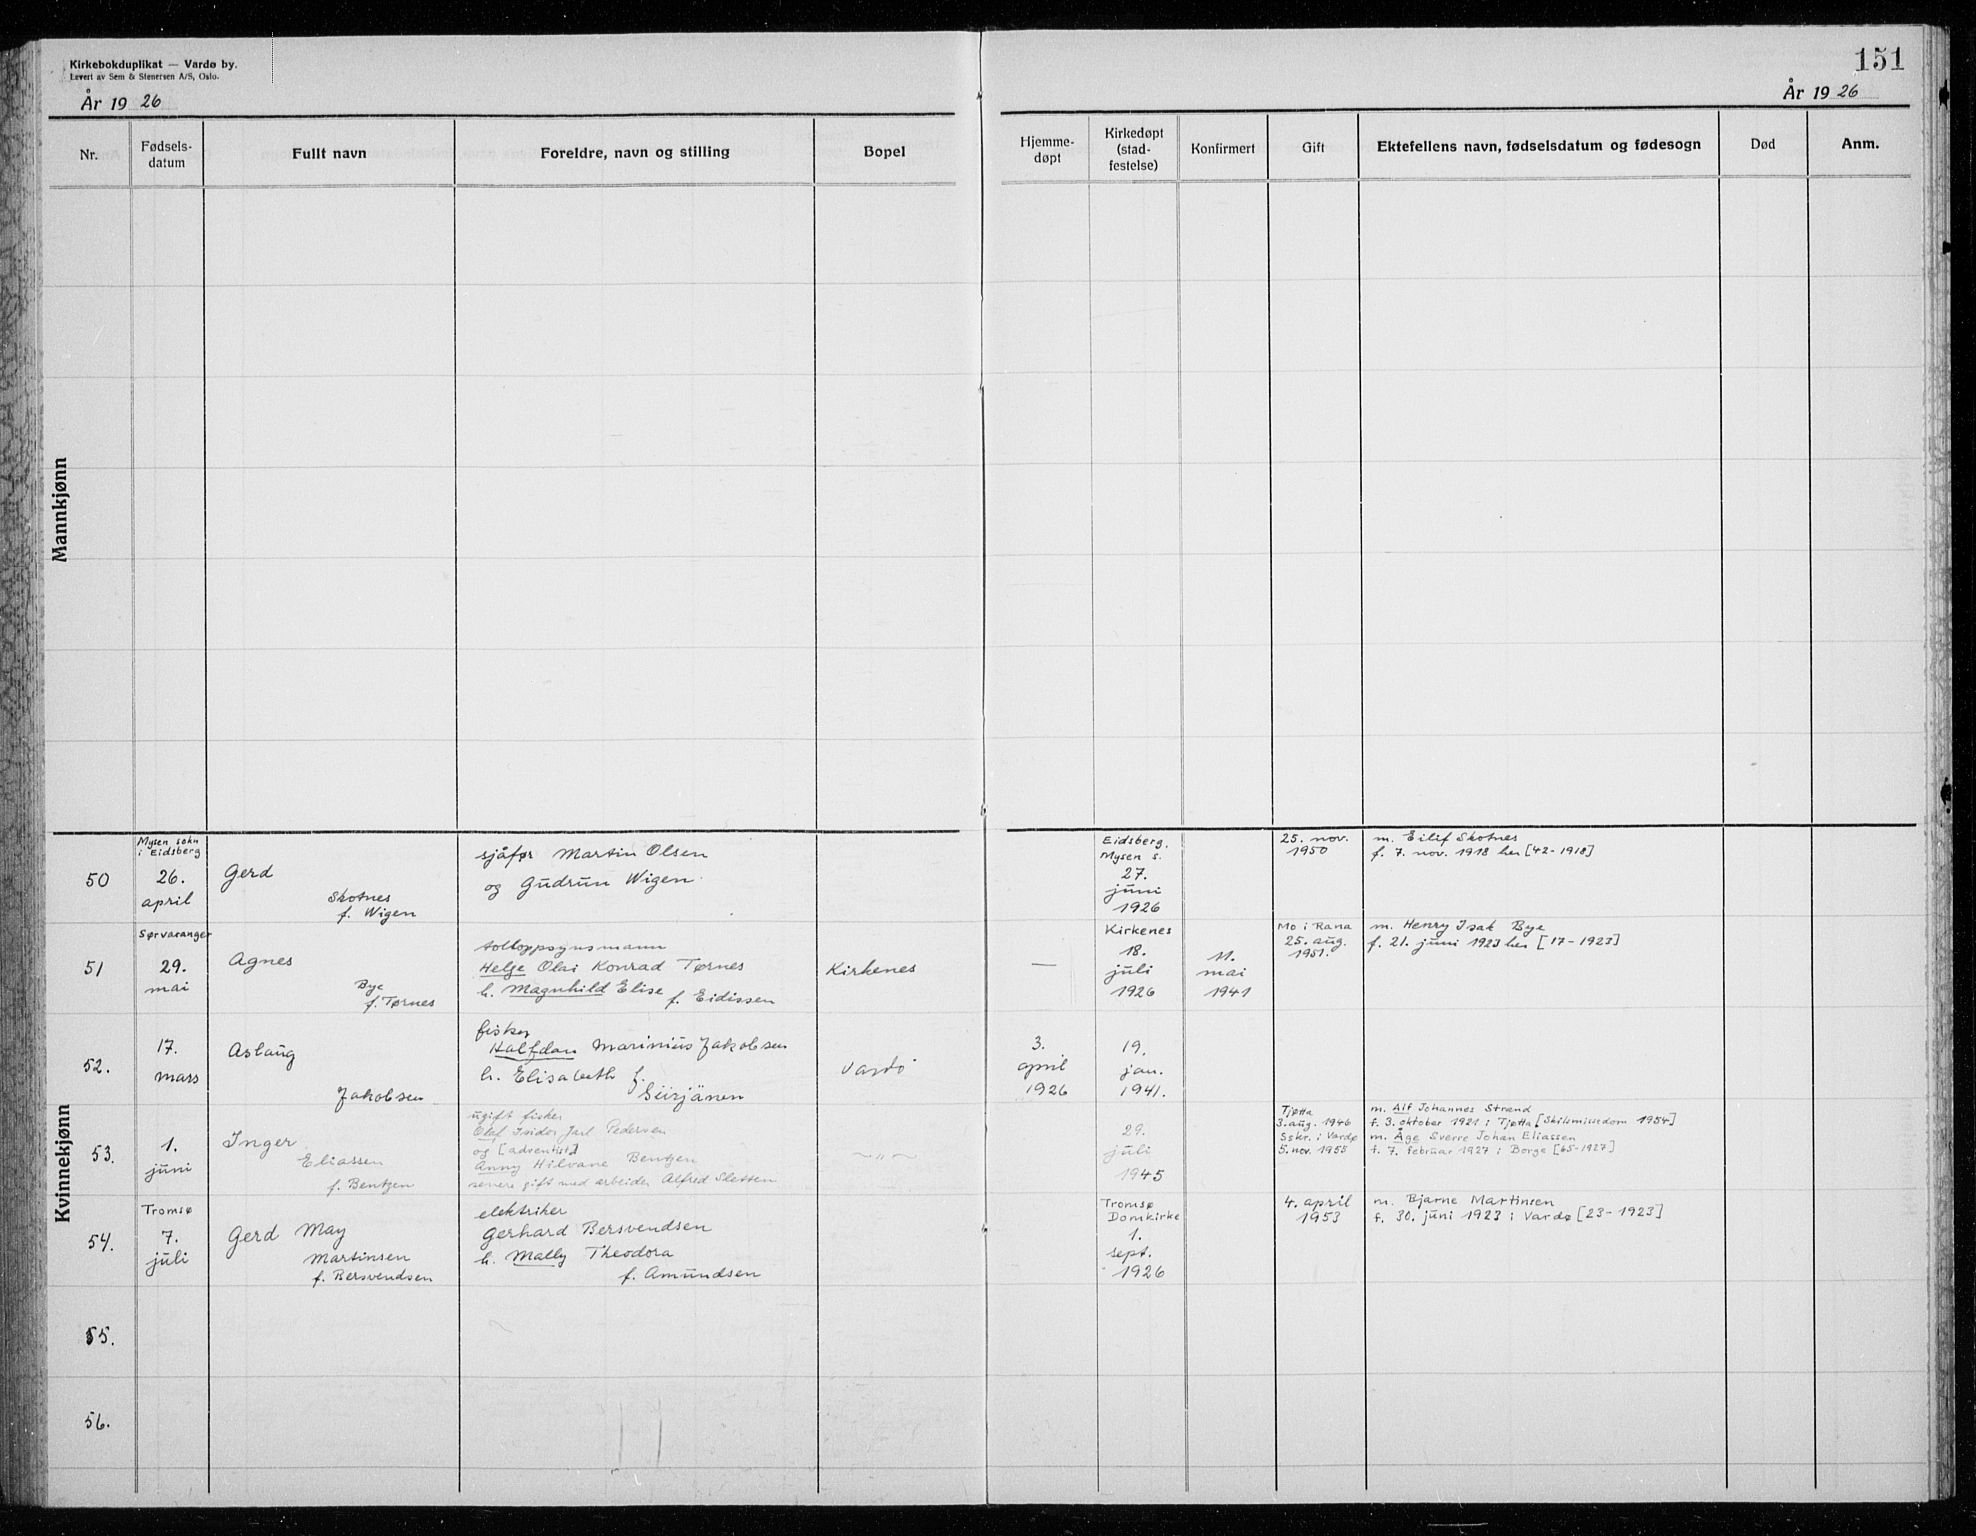 Kirkebokduplikat — Vardø by.
Levert av Sem & Stenersen A/S, Oslo.
År 19 26
Nr.
Fødsels-
datum
Fullt navn
Foreldre, navn og stilling
Bopel
Mannkjønn
Kvinnekjønn
50
Mysen sokn
i Eidsberg
26.
april
Gerd
Skotnes
f. Wigen
sjåfør Martin Olsen
og Gudrun Wigen
51
Sørvaranger
29.
mai
Agnes
Bye
f. Tørnes
tolloppsynsmann
Helge Olai Konrad Tørnes
h. Magnhild Elise f. Eidissen
Kirkenes
52.
17.
mars
Aslaug
Jakobsen
fisker
Halfdan Marinius Jakobsen
h. Elisabeth f.
Siirjänen
Vardø
53.
1.
juni
Inger
Eliassen
f. Bentzen
ugift fisker
Olaf Isidor Jarl Pedersen
og [adventist]
Anny Hilvane Bentzen
senere gift med arbeider Alfred Sletten
—"—
54.
Tromsø
7.
juli
Gerd May
Martinsen
f. Bersvendsen
elektriker
Gerhard Bersvendsen
h. Mally Theodora
f. Amundsen
55.
56.
151
År 19 26
Hjemme-
døpt
Kirkedøpt
(stad-
festelse)
Konfirmert
Gift
Ektefellens navn, fødselsdatum og fødesogn
Død
Anm.
Eidsberg,
Mysen s.
27.
juni
1926
25. nov.
1950
m. Eilif Skotnes
f. 7. nov. 1918 her [42-1918]
—
Kirkenes
18.
juli
1926
11.
mai
1941
Mo i Rana
25. aug.
1951.
m. Henry Isak Bye
f. 21. juni 1923 her [17-1923]
3.
april
1926
19.
jan.
1941.
29.
juli
1945
Tjøtta
3. aug. 1946
Sskr. i Vardø
5. nov. 1955
m. Alf Johannes Strand
f. 3. oktober 1921 i Tjøtta [Skilsmissedom 1954]
m. Åge Sverre Johan Eliassen
f. 7. februar 1927 i Borge [65-1927]
Tromsø
Domkirke
1.
sept.
1926
4. april
1953
m. Bjarne Martinsen
f. 30. juni 1923 i Vardø [23-1923]